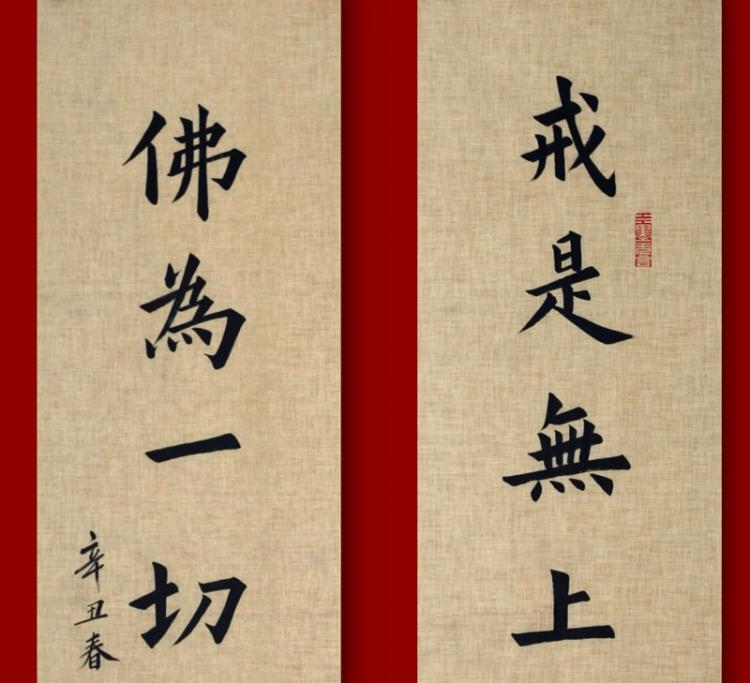 戒是無上
佛為一切
辛丑春